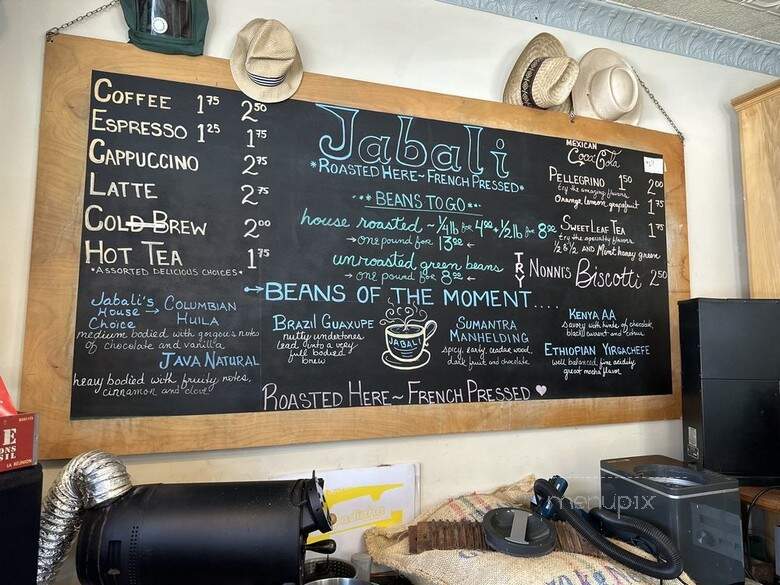 COFFEE 1 75 2 50
ESPRESSO 1 25 1 75
CAPPUCCINO 2 75
LATTE 2 75
COLD BREW 2 00
HOT TEA 1 75
*ASSORTED DELICIOUS CHOICES*
Jabali's House Choice → COLUMBIAN HUILA
medium bodied with gorgous notes
of chocolate and vanilla
JAVA NATURAL
heavy bodied with fruity notes,
cinnamon and clove
Jabali
*ROASTED HERE~FRENCH PRESSED*
BEANS TO GO
house roasted ~ 1/4 lb for 4 00 + 1/2 lb for 8 00
→ one pound for 13 00 ←
unroasted green beans
→ one pound for 8 00 ←
BEANS OF THE MOMENT....
BRAZIL GUAXUPE
nutty undertones
lead into a very
full bodied
brew
JABALI
SUMANTRA
MANHELDING
spicy, earthy, cedar wood,
dark fruit and chocolate
KENYA AA
savory with hints of chocolate,
black currant and citrus
ETHIOPIAN YIRGACHEFE
well balanced, fine acidity
great mocha flavor
ROASTED HERE~FRENCH PRESSED
MEXICAN
Coca Cola
PELLEGRINO 1 50 2 00
try the amazing flavors
Orange lemon grapefruit 1 75
SWEET LEAF TEA 1 75
try the specialty flavors
1/2 & 1/2 AND Mint honey green
TRY NONNIS Biscotti 2 50
menupix
LA REUNION